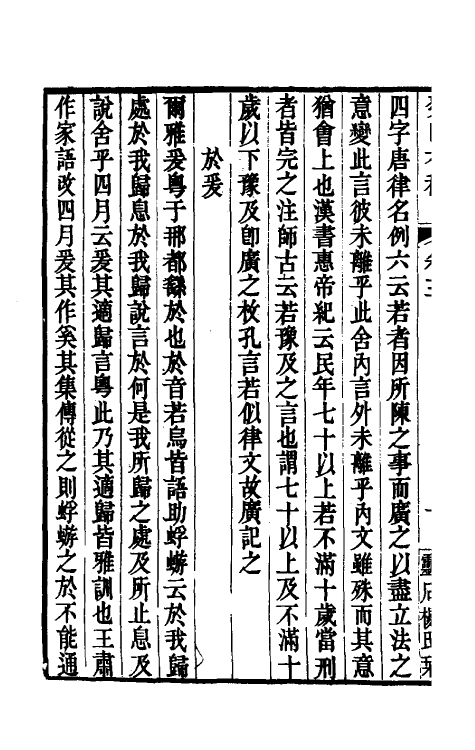 四字唐律名例六云若者因所陳之事而廣之以盡立法之
意變此言彼未離乎此舍內言外未離乎內文雖殊而其意
猶會上也漢書惠帝紀云民年七十以上若不滿十歲當刑
者皆完之注師古云若豫及之言也謂七十以上及不滿十
歲以下豫及卽廣之枚孔言若似律文故廣記之
於爰
爾雅爰粤于那都繇於也於音若烏皆語助蜉蝣云於我歸
處於我歸息於我歸說言於何是我所歸之處及所止息及
說舍乎四月云爰其適歸言粤此乃其適歸皆雅訓也王肅
作家語改四月爰其作奚其集傳從之則蜉蝣之於不能通